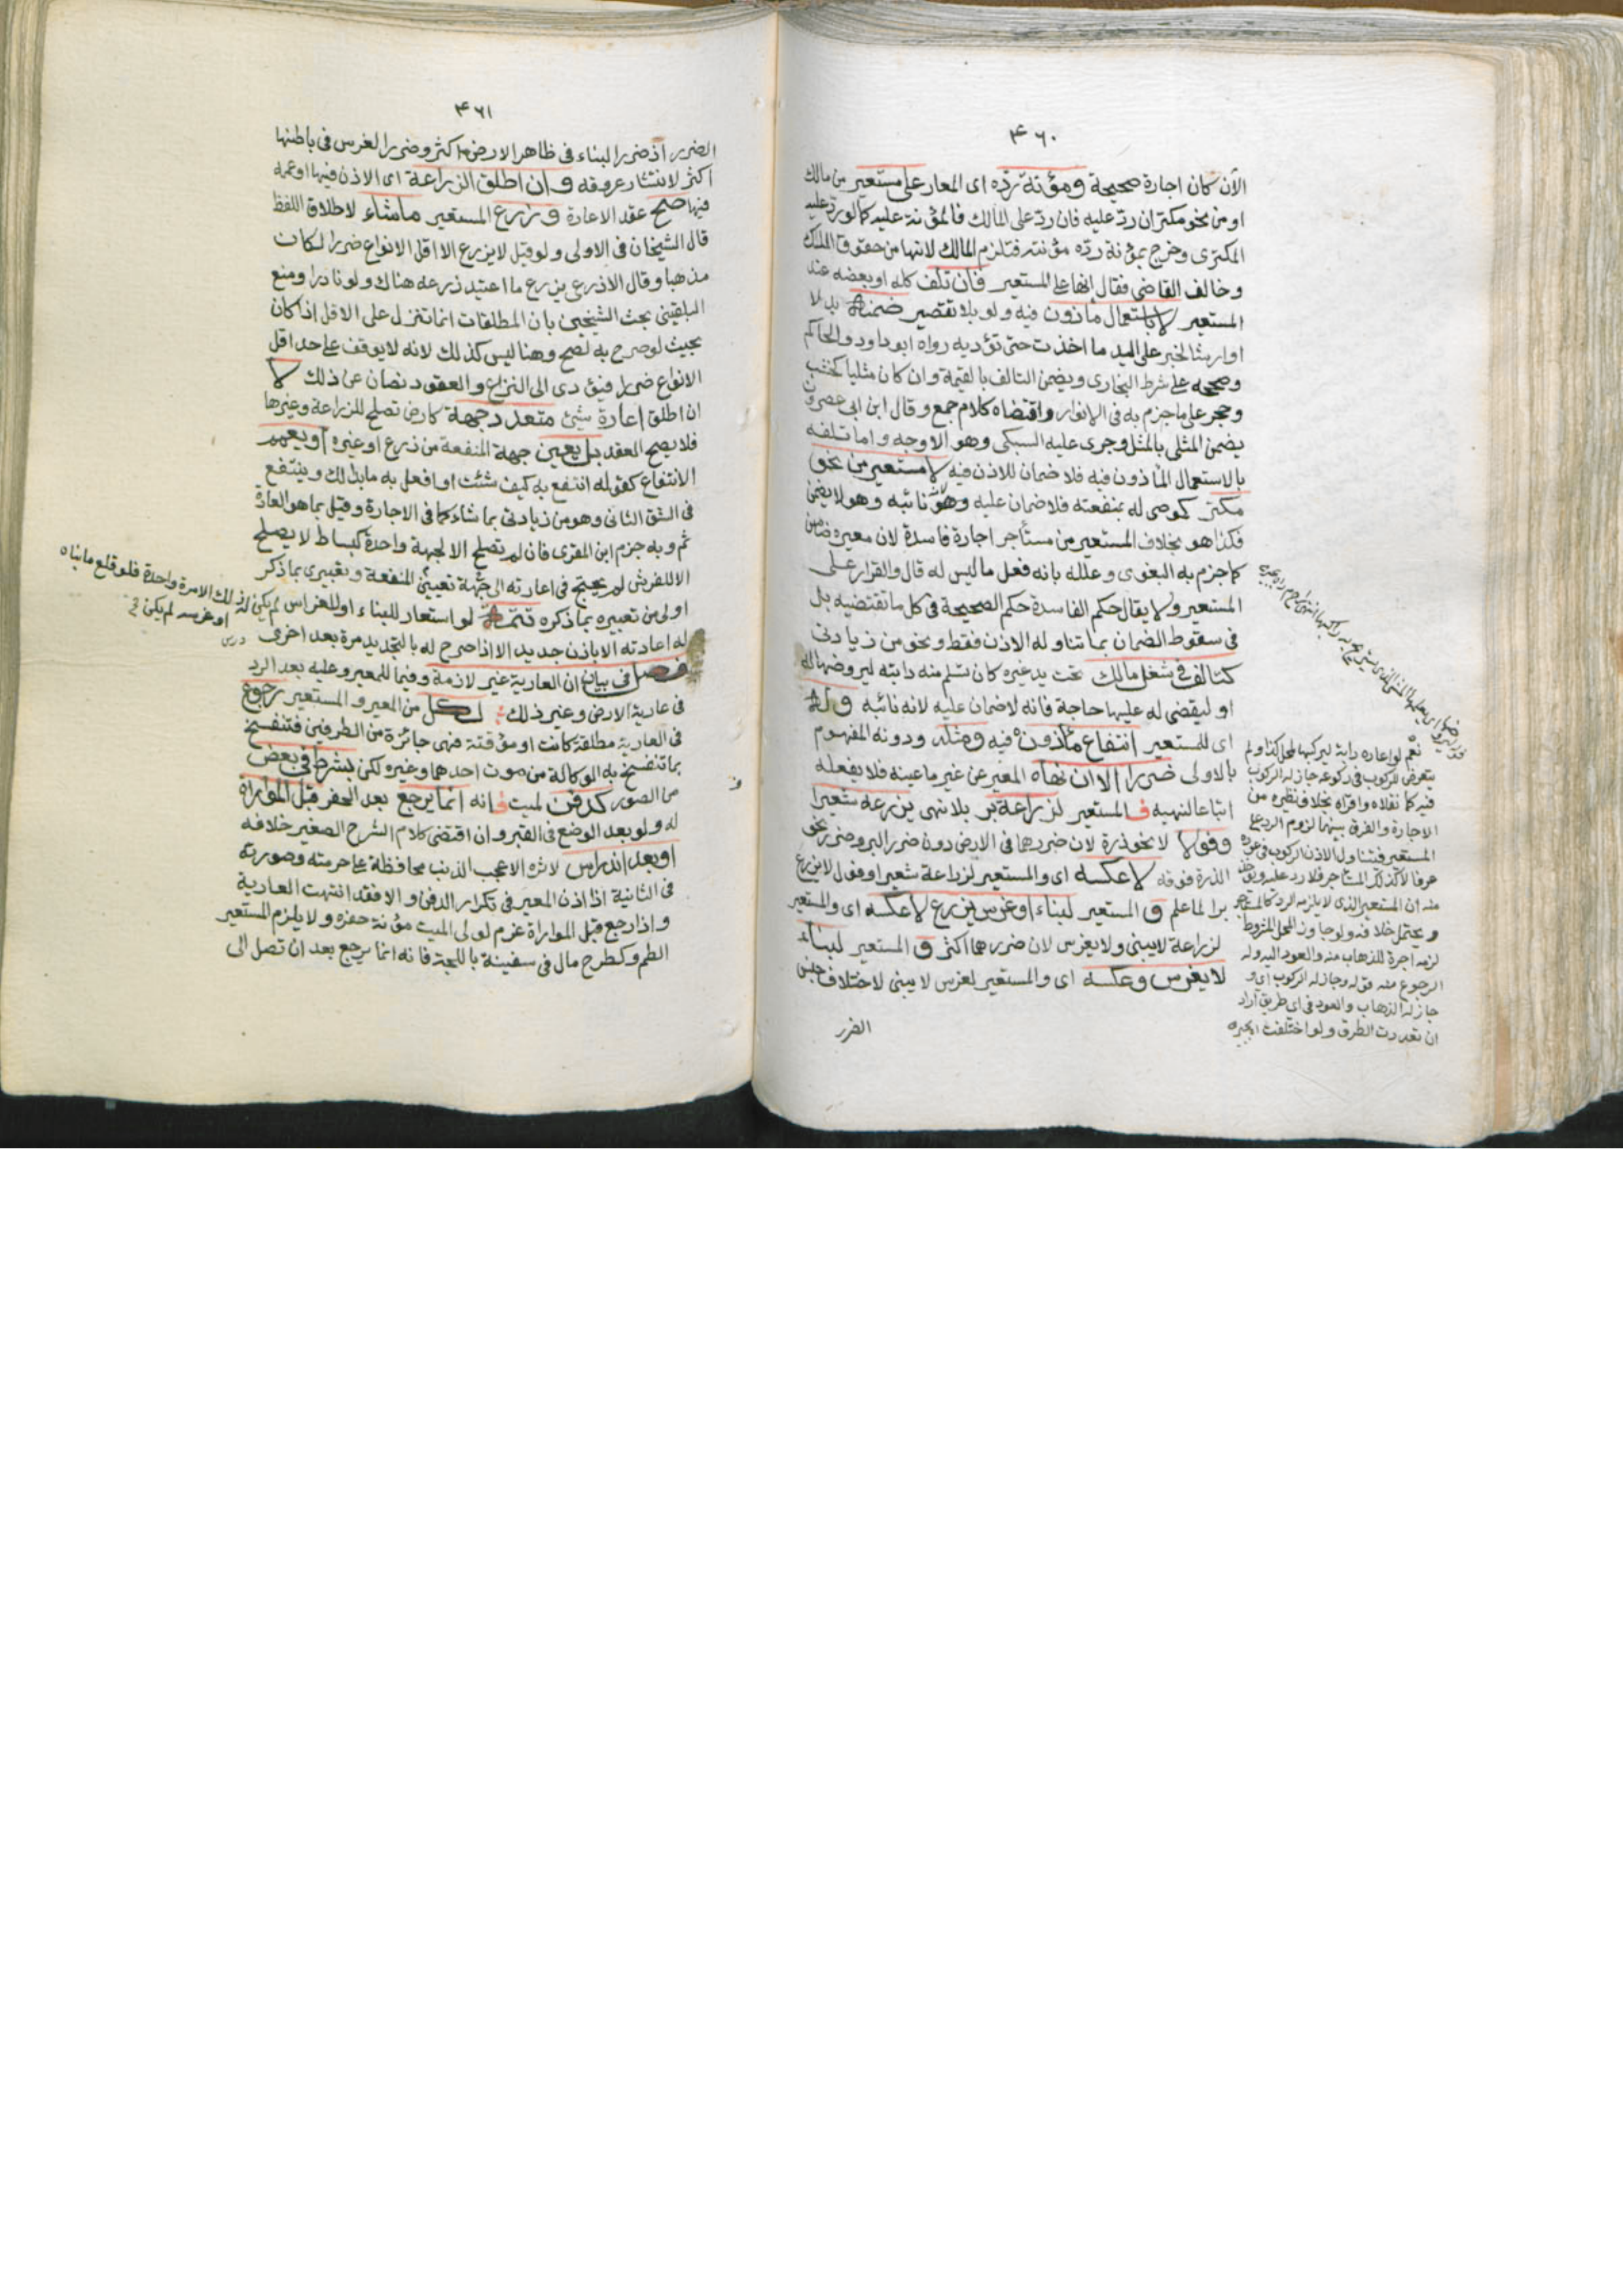 ۴۶۰
الآن كان اجارة صحيحة ومؤنة ردّه اى المعار على مستعير من مالك
او من نحو مكتر ان ردّ عليه فان ردّ على المالك فالمؤنة عليه كما لو ردّ عليه
المكترى وخرج بمؤنة ردّه مؤنته فتلزم المالك لانها من حقوق الملك
وخالف القاضى فقال إنها على المستعير فان تلف كله او بعضه عند
المستعير لا باستعمال مأذون فيه ولو بلا تقصير ضمنه بدلا
او ارشا لخبر على اليد ما اخذت حتى تؤديه رواه ابو داود والحاكم
وصححه على شرط البخارى ويضمن التالف بالقيمة وان كان مثليا كخشب
وحجر على ما جزم به فى الانوار واقتضاه كلام جمع وقال ابن ابى عصرون
يضمن المثلى بالمثل وجرى عليه السبكى وهو الاوجه واما تلفه
بالاستعمال المأذون فيه فلا ضمان للاذن فيه لا مستعير من نحو
مكتر كموصى له بمنفعته فلا ضمان عليه وهو نائبه وهو لا يضمن
فكذا هو بخلاف المستعير من مستأجر اجارة فاسدة لان معيره ضامن
كما جزم به البغوى وعلله بانه فعل ما ليس له قال والقرار على
المستعير ولا يقال حكم الفاسدة حكم الصحيحة فى كل ما تقتضيه بل
فى سقوط الضمان بما تناوله الاذن فقط ونحو من زيادتى
كتالف فى شغل مالك تحت يد غيره كان تسلم منه دابته ليروضها له
او ليقضى له عليها حاجة فانه لا ضمان عليه لانه نائبه وله
اى للمستعير انتفاع مأذون فيه ومثله ودونه المفهوم
بالاولى ضررا الا ان نهاه المعير عن غير ما عينه فلا يفعله
اتباعا لنهيه فالمستعير لزراعة بر بلا نهى يزرعه شعيرا
وفولا لا نحو ذرة لان ضررهما فى الارض دون ضرر البر وضرر نحو
الذرة فوقه لا عكسه اى والمستعير لزراعة شعير او فول لا يزرع
برا لما علم و المستعير لبناء او غرس يزرع لا عكسه اى والمستعير
لزراعة لا يبنى ولا يغرس لان ضررهما اكثر و المستعير لبناء
لا يغرس وعكسه اى والمستعير لغرس لا يبنى لاختلاف جنس
الضرر
نعم لو اعاره دابة ليركبها لمحل كذا ولم
يتعرض للركوب فى رجوعه جاز له الركوب
فيه كما نقلاه واقراه بخلاف نظيره من
الاجارة والفرق بينهما لزوم الرد على
المستعير فتناول الاذن الركوب فى عوده
عرفا لا كذلك المستاجر فلا رد عليه ويؤخذ
منه ان المستعير الذى لا يلزمه الرد كالمستاجر
ويحتمل خلافه ولو جاوز المحل المشروط
لزمه اجرة للذهاب منه والعود اليه وله
الرجوع منه قوله وجاز له الركوب اى و
جاز له الذهاب والعود فى اى طريق اراد
ان تعددت الطرق ولو اختلفت
۴۶۱
الضرر اذ ضرر البناء فى ظاهر الارض اكثر وضرر الغرس فى باطنها
اكثر لانتشار عروقه وان اطلق الزراعة اى الاذن فيها او عممه
فيها صح عقد الاعارة وزرع المستعير ما شاء لاطلاق اللفظ
قال الشيخان فى الاولى ولو قيل لا يزرع الا اقل الانواع ضررا لكان
مذهبا وقال الاذرعى يزرع ما اعتيد زرعه هناك ولو نادرا ومنع
البلقينى بحث الشيخين بان المطلقات انما تنزل على الاقل اذا كان
بحيث لو صرح به لصح وهنا ليس كذلك لانه لا يوقف على حد اقل
الانواع ضررا فيؤدى الى النزاع والعقود تصان عن ذلك لا
ان اطلق اعارة شئ متعدد جهة كارض تصلح للزراعة وغيرها
فلا يصح العقد بل يعين جهة المنفعة من زرع او غيره او يعمم
الانتفاع كقوله انتفع به كيف شئت او افعل به ما بدا لك وينتفع
فى الشق الثانى وهو من زيادتى بما شاء كما فى الاجارة وقيل بما هو العادة
ثم وبه جزم ابن المقرى فان لم تصلح الا لجهة واحدة كبساط لا يصلح
الا للفرش لم يحتج فى اعارته الى جهة تعيين المنفعة وتعبيرى بما ذكر
اولى من تعبيره بما ذكره تتمة لو استعار للبناء او للغراس لم يكن له ذلك الا مرة واحدة فلو قلع ما بناه
او غرسه لم يكن
له اعادته الا باذن جديد الا اذا صرح له بالتجديد مرة بعد اخرى
فصل فى بيان ان العارية غير لازمة وفيما للمعير وعليه بعد الرد
فى عارية الارض وغير ذلك لكل من المعير والمستعير رجوع
فى العارية مطلقة كانت او مؤقتة فهى جائزة من الطرفين فتنفسخ
بما تنفسخ به الوكالة من موت احدهما وغيره لكن بشرط فى بعض
من الصور كدفن لميت فانه انما يرجع بعد الحفر قبل المواراة
له ولو بعد الوضع فى القبر وان اقتضى كلام الشرح الصغير خلافه
او بعد اندراس لاثره الا عجب الذنب محافظة على حرمته وصورته
فى الثانية اذا اذن المعير فى تكرار الدفن والا فقد انتهت العارية
واذا رجع قبل المواراة غرم لولى الميت مؤنة حفره ولا يلزم المستعير
الطم وكطرح مال فى سفينة باللجة فانه انما يرجع بعد ان تصل الى